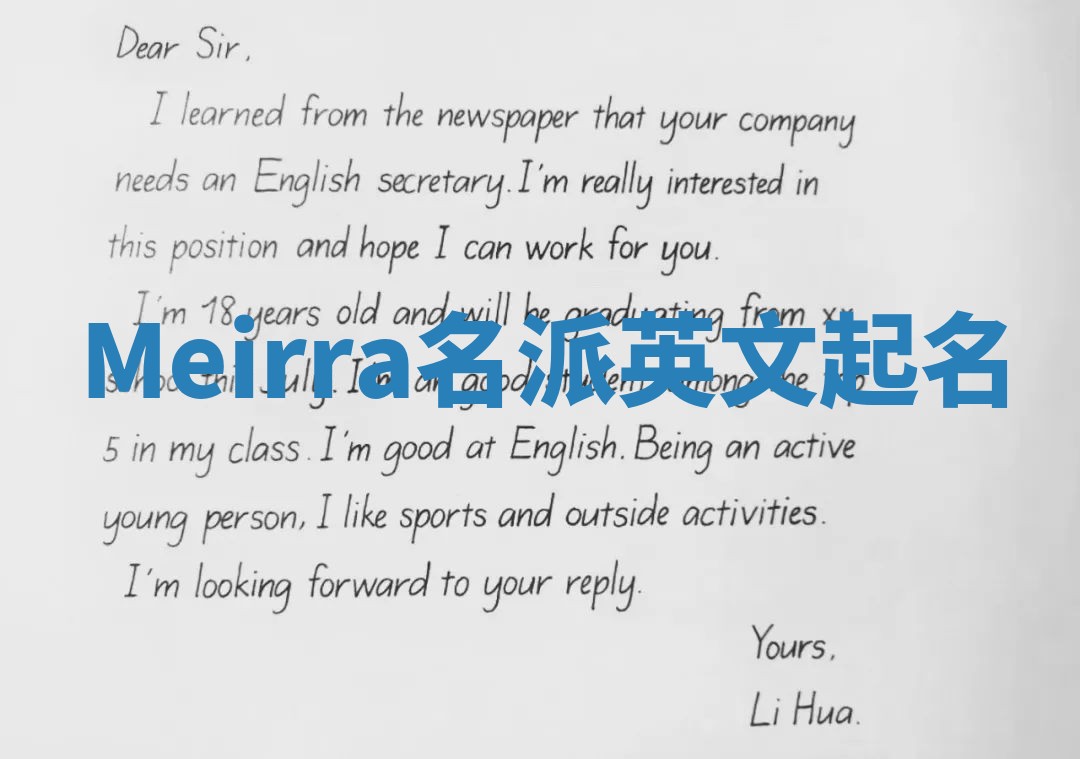 Dear Sir,
I learned from the newspaper that your company
needs an English secretary. I'm really interested in
this position and hope I can work for you.
I'm 18 years old and will be graduating from xx
Meirra名派英文起名
school this July. I'm an good student among the top
5 in my class. I'm good at English. Being an active
young person, I like sports and outside activities.
I'm looking forward to your reply.
Yours,
Li Hua.